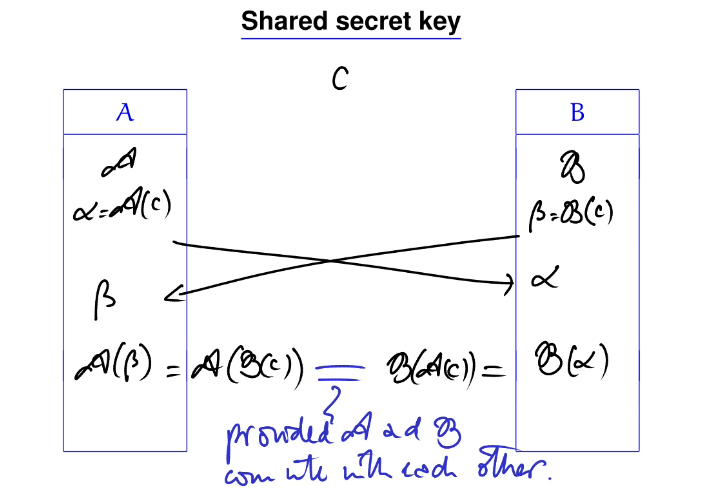 Shared secret key
C
A B
𝒜 ℬ
α=𝒜(c) β=ℬ(c)
β α
𝒜(β) = 𝒜(ℬ(c)) = ℬ(𝒜(c)) = ℬ(α)
?
provided 𝒜 ad ℬ
commute with each other.